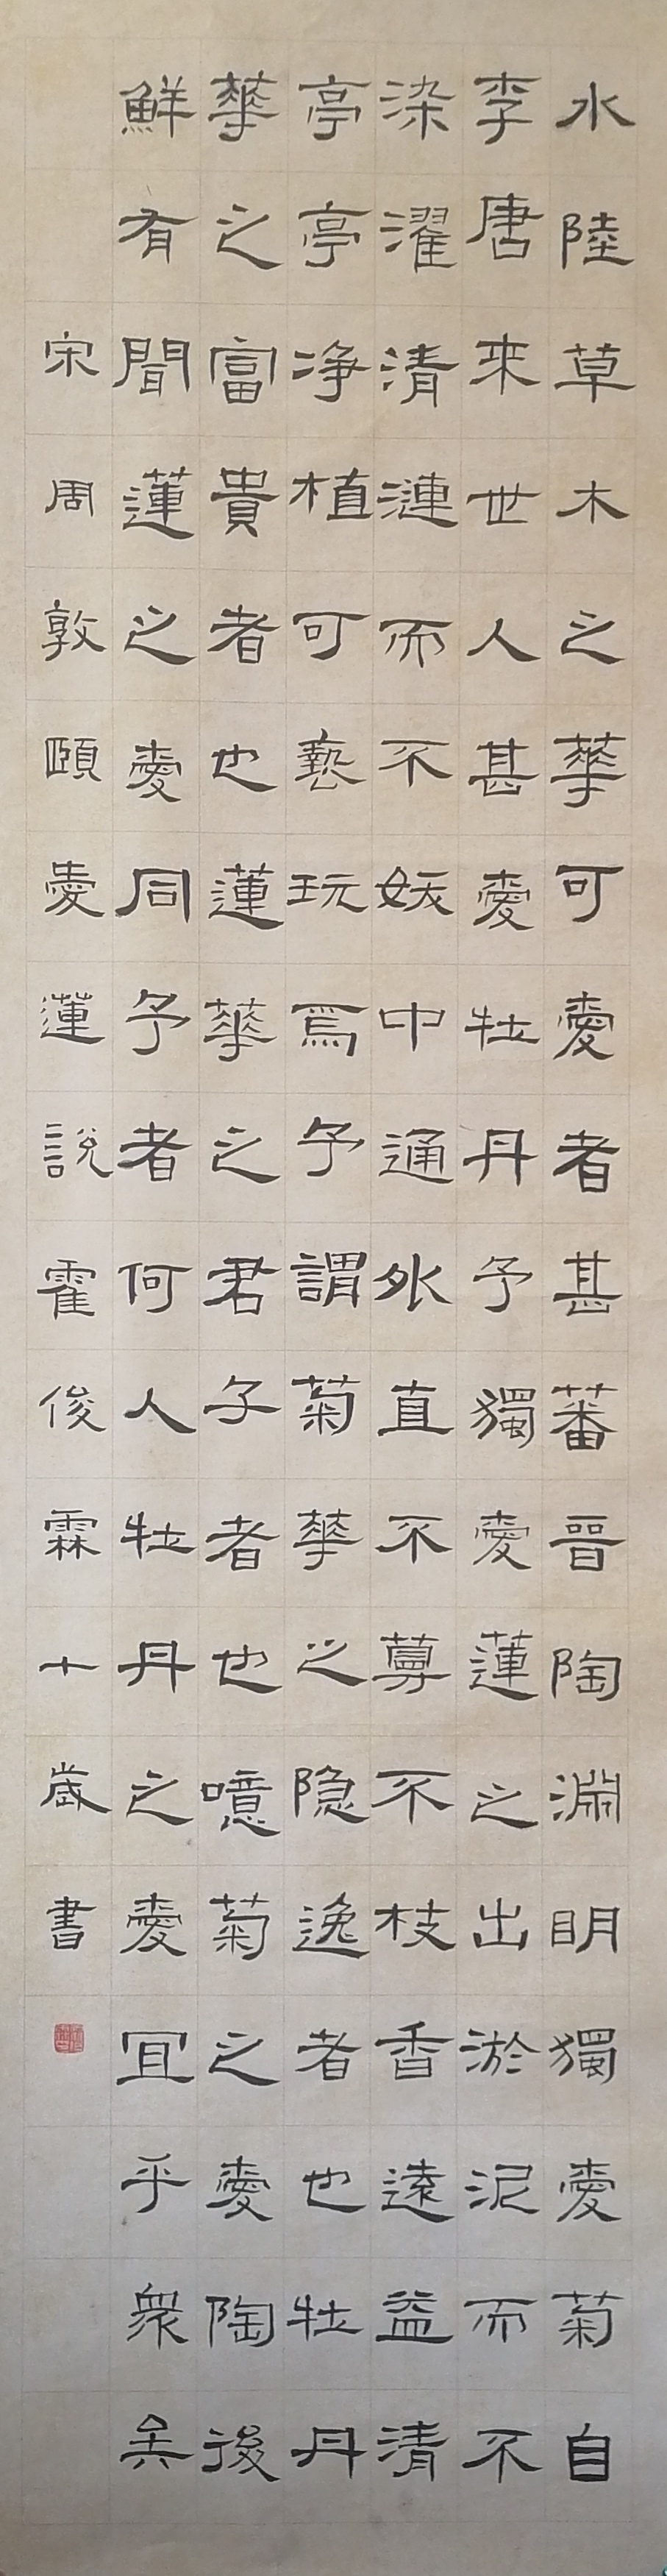 水陸草木之華可愛者甚蕃晉陶淵明獨愛菊自
李唐來世人甚愛牡丹予獨愛蓮之出淤泥而不
染濯清漣而不妖中通外直不蔓不枝香遠益清
亭亭净植可褻玩焉予謂菊華之隐逸者也牡丹
華之富貴者也蓮華之君子者也噫菊之愛陶後
鮮有聞蓮之愛同予者何人牡丹之愛宜乎眾矣
宋周敦頤愛蓮說霍俊霖十歲書